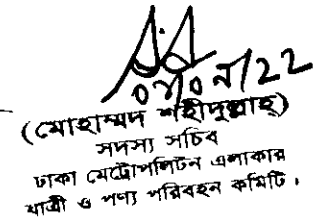 ০৭/০৭/22
(মোহাম্মদ শহীদুল্লাহ)
সদস্য সচিব
ঢাকা মেট্রোপলিটন এলাকার
যাত্রী ও পণ্য পরিবহন কমিটি।